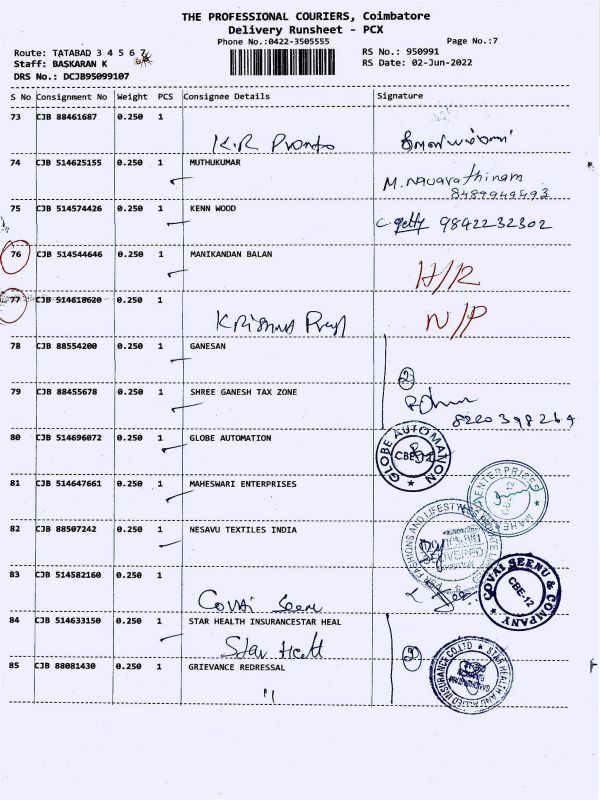 THE PROFESSIONAL COURIERS, Coimbatore
Delivery Runsheet - PCX
Phone No.:0422-3505555
Page No.:7
Route: TATABAD 3 4 5 6 7
RS No.: 950991
Staff: BASKARAN K
RS Date: 02-Jun-2022
DRS No.: DCJB95099107
S No Consignment No Weight PCS Consignee Details Signature
73 CJB 88461687 0.250 1
K.R Pronto
74 CJB 514625155 0.250 1 MUTHUKUMAR
M. Navarathinam
8489949493
75 CJB 514574426 0.250 1 KENN WOOD
9842232302
76 CJB 514544646 0.250 1 MANIKANDAN BALAN
H/R
77 CJB 514618620 0.250 1
N/P
78 CJB 88554200 0.250 1 GANESAN
2
79 CJB 88455678 0.250 1 SHREE GANESH TAX ZONE
8220398264
80 CJB 514696072 0.250 1 GLOBE AUTOMATION
GLOBE AUTOMATION
CBE-12
81 CJB 514647661 0.250 1 MAHESWARI ENTERPRISES
ENTERPRISES
82 CJB 88507242 0.250 1 NESAVU TEXTILES INDIA
FASHIONS AND LIFESTYLE
83 CJB 514582160 0.250 1
Covai Seenu
COVAI SEENU & COMPANY
CBE-12
84 CJB 514633150 0.250 1 STAR HEALTH INSURANCESTAR HEAL
Star Health
2
85 CJB 88081430 0.250 1 GRIEVANCE REDRESSAL
"
STAR HEALTH AND ALLIED INSURANCE CO.LTD